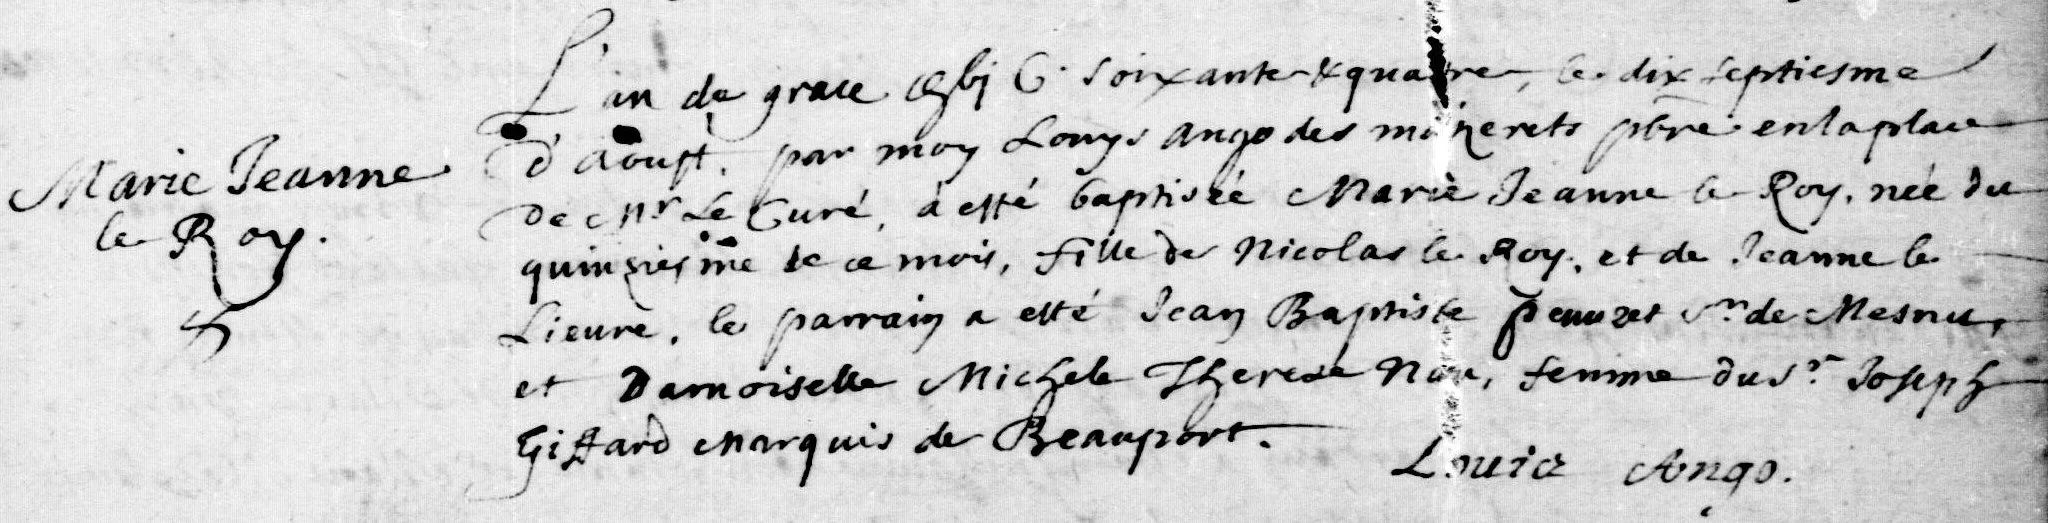 Marie Jeanne
le Roy.
L'an de grace Gbj C. soixante & quatre, le dix septiesme
d'Aoust, par moy Louys Ango des maizerets pbre en la place
de Mr Le Curé, à esté baptisée Marie Jeanne le Roy, née du
quinziesme de ce mois, fille de Nicolas le Roy, et de Jeanne le
Lieure, le parrain a esté Jean Baptiste peuuret Sr de Mesnu,
et Damoiselle Michele Therese Nau, femme du Sr Joseph
Giffard Marquis de Beauport.
Louis Ango.